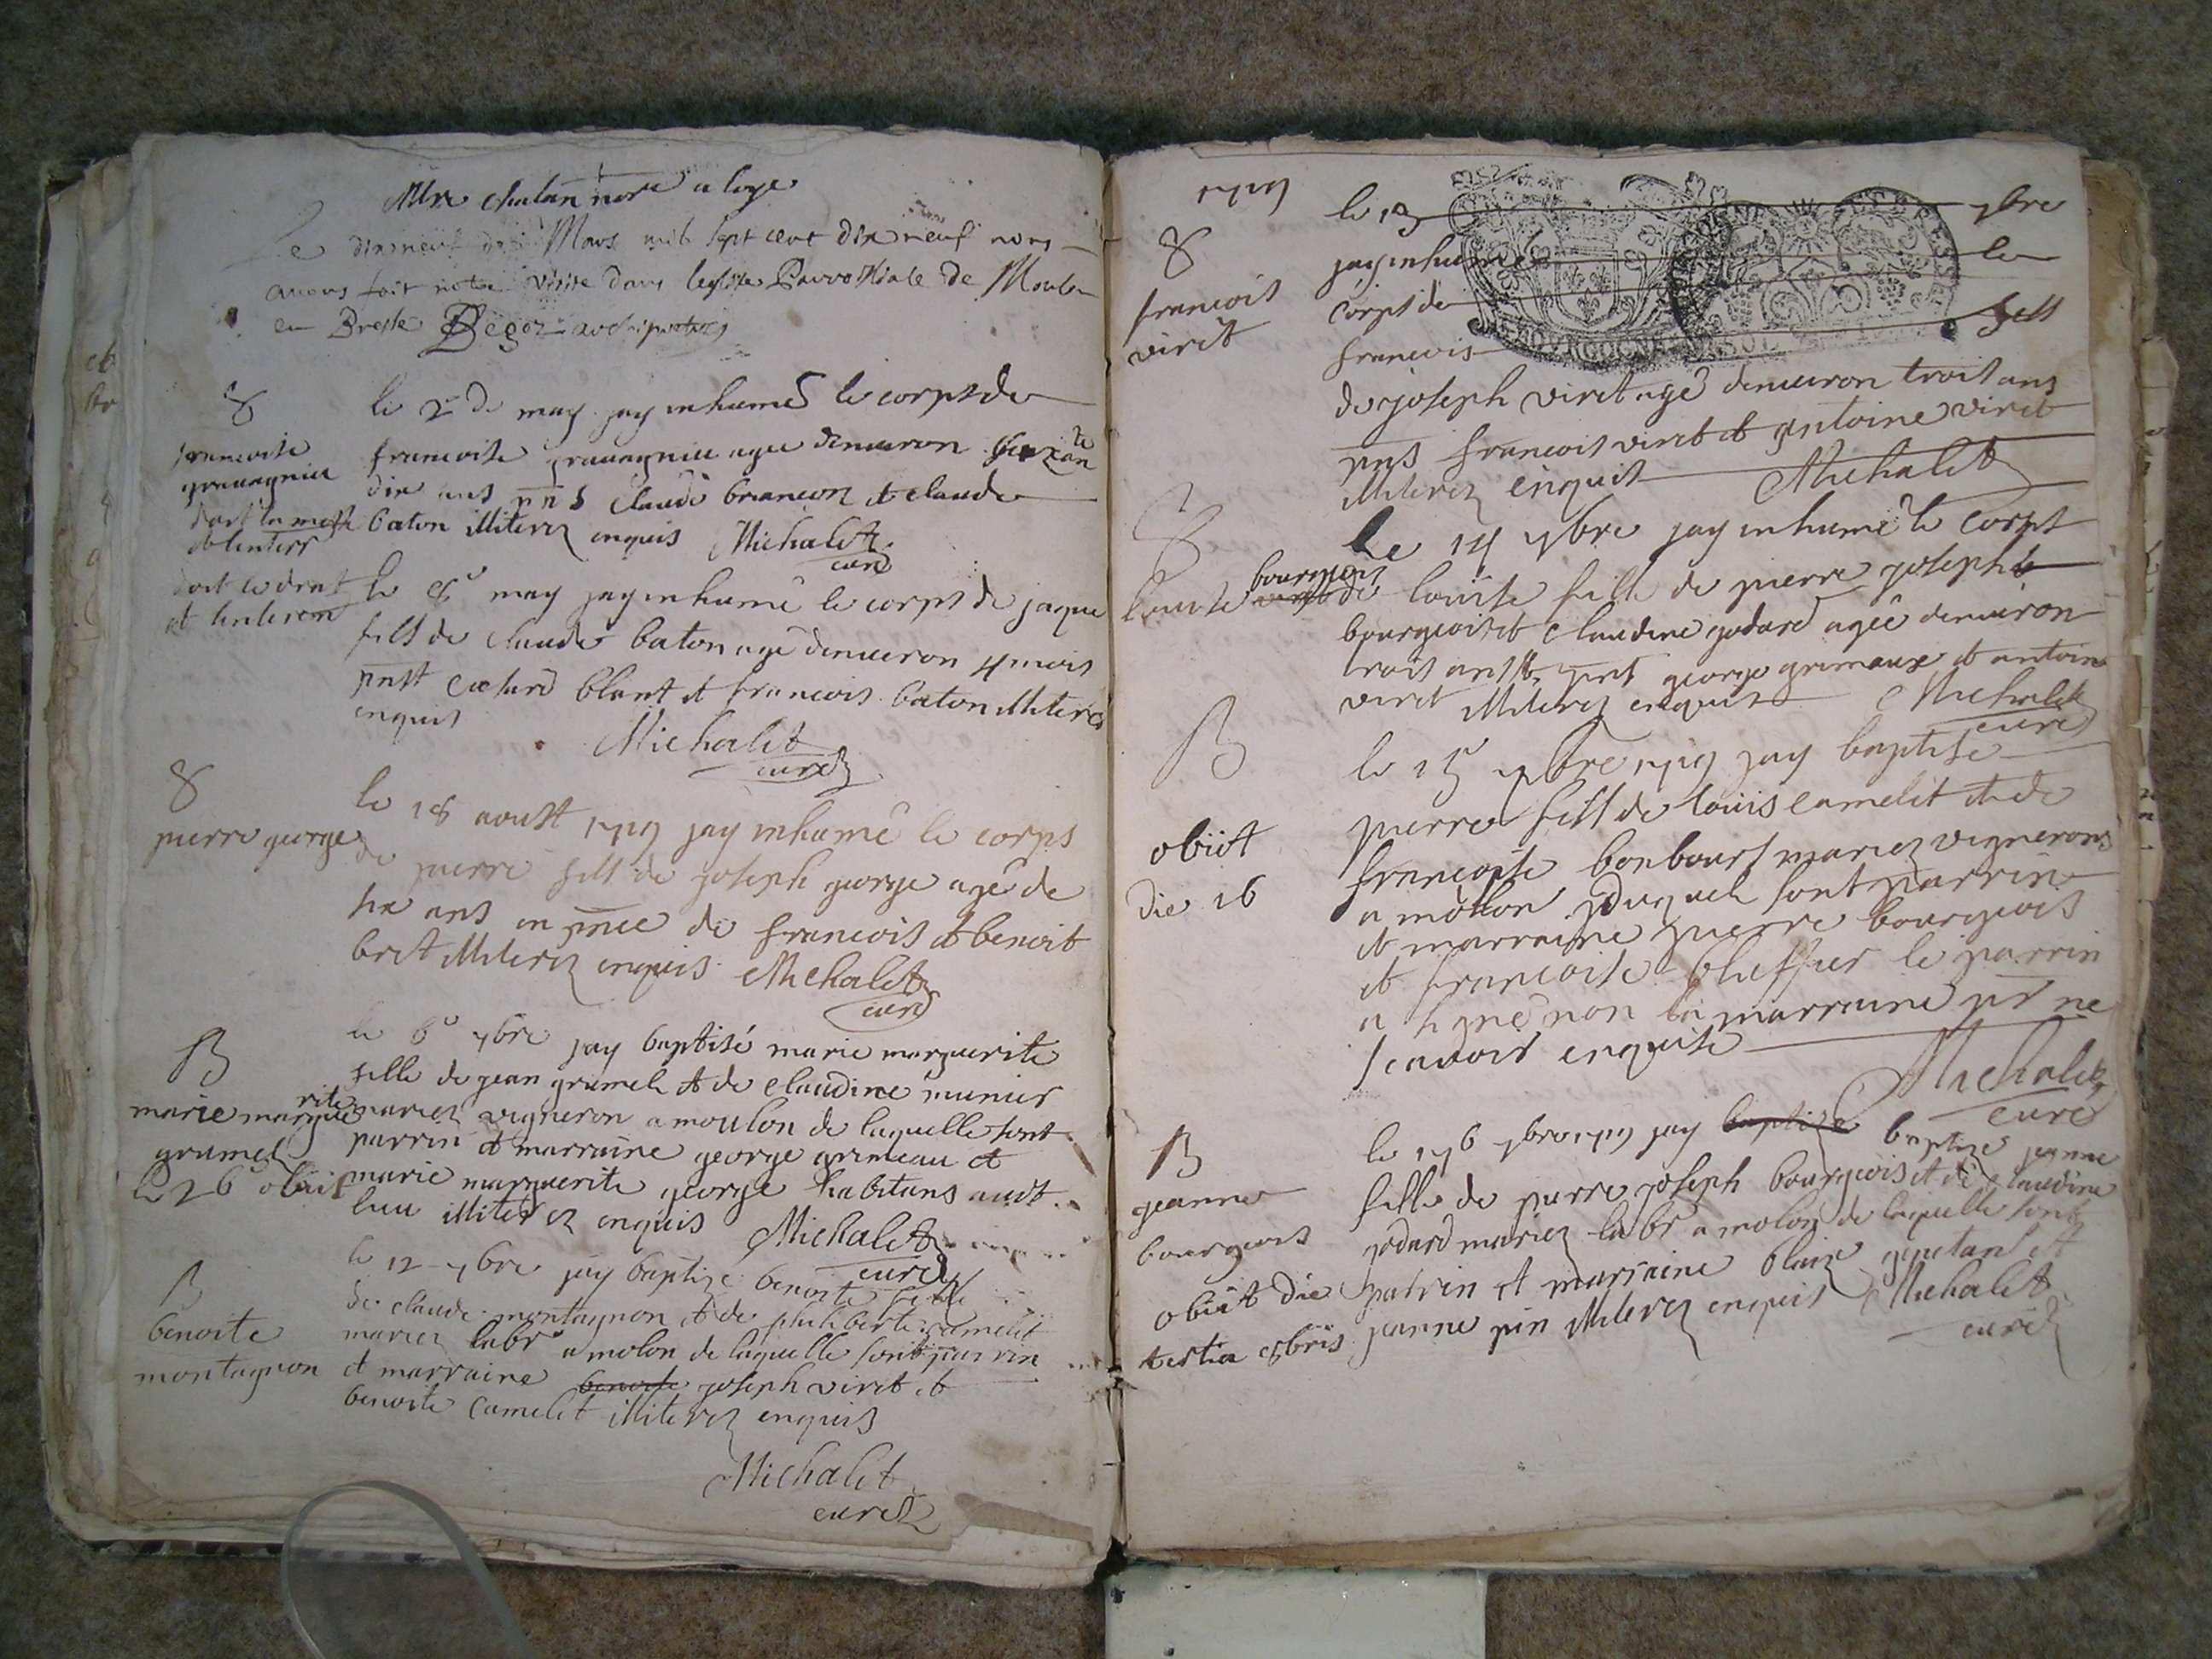 Mre chatan nore a loye
Le dixneuf de Mars mil sept cent dix neuf nous
avons fait notre visite dans leglise Parrochiale de Moulon
en Bresse Begoz archipretre
8
francoise
gravagniu
doit la messe
et linterr
le 2 de may jay inhumé le corps de
francoise gravagniu agee denuiron
dix ans pnts claude brancon et claude
baton illiterez enquis Michalet
curé
doit le drat
et linterem
le 8e may jay inhumé le corps de jaque
fils de claude baton agé denuiron 4 mois
pnst blant et francois baton illiterés
enquis
Michalet
curé
8
pierre george
le 18 aoust 1719 jay inhumé le corps
de pierre fils de joseph george agé de
six ans en pnce de francois et benoit
bret illiterez enquis Michalet
curé
B
marie marguerite
grumel
le 26 obiit
le 6e 7bre jay baptisé marie marguerite
fille de jean grumel et de claudine munier
mariez vigneron a moulon de laquelle sont
parrin et marraine george grimeau et
marie marguerite george habitans audt
lieu illiterez enquis Michalet
curé
B
benoite
montagnon
le 12 7bre jay baptize benoite fille
de claude montagnon et de philiberte camelet
mariez labr a molon de laquelle sont parrin
et marraine benoite joseph viret et
benoite camelet illiterez enquis
Michalet
curé
1719
8
francois
viret
le 13 7bre
jay inhumé le
corps de
francois fils
de joseph viret agé denuiron trois ans
pnts francois viret et antoine viret
illiterez enquis Michalet
8
louise bourgeois
Le 14 7bre jay inhumé le corps
de louise fille de pierre joseph
bourgeois et claudine godard agée denuiron
trois ans pnts george grimaux et antoine
viret illiterez enquis Michalet
curé
B
obiit
die 16
le 15 7bre 1719 jay baptisé
pierre fils de louis camelet et de
francoise bonbours mariez vignerons
a molon duquel sont parrin
et marraine pierre bourgeois
et francoise bluffier le parrin
a signé non la marraine pr ne
scavoir enquise
Michalet
curé
B
jeanne
bourgeois
obiit die
tertia 8bris
le 1716 7bre 1719 jay baptizé baptizé jeanne
fille de pierre joseph bourgeois et de claudine
godard mariez labr a molon de laquelle sont
patrin et marraine blaize et
jeanne pin illiterez enquis Michalet
curé
BOURGOGNE